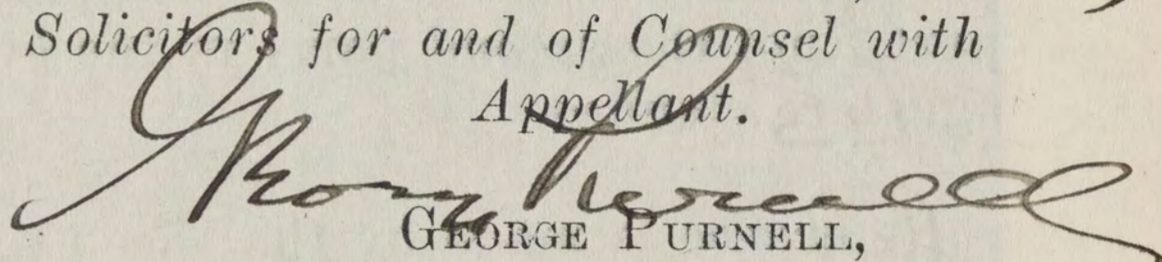 Solicitors for and of Counsel with
Appellant.
George Purnell
GEORGE PURNELL,